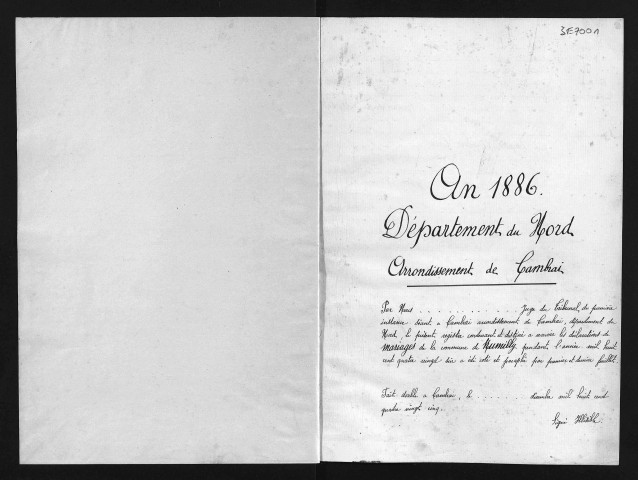 3E7001
An 1886.
Département du Nord
Arrondissement de Cambrai
Par Nous . . . . . . . . . . . . . . Juge du Tribunal de première
instance séant à Cambrai arrondissement de Cambrai, département du
Nord, le présent registre contenant et destiné à recevoir les déclarations de
mariages de la commune de Rumilly pendant l'année mil huit
cent quatre vingt six a été coté et paraphé par premier et dernier feuillet
Fait double à Cambrai, le . . . . . . . . décembre mil huit cent
quatre vingt cinq.
Signé